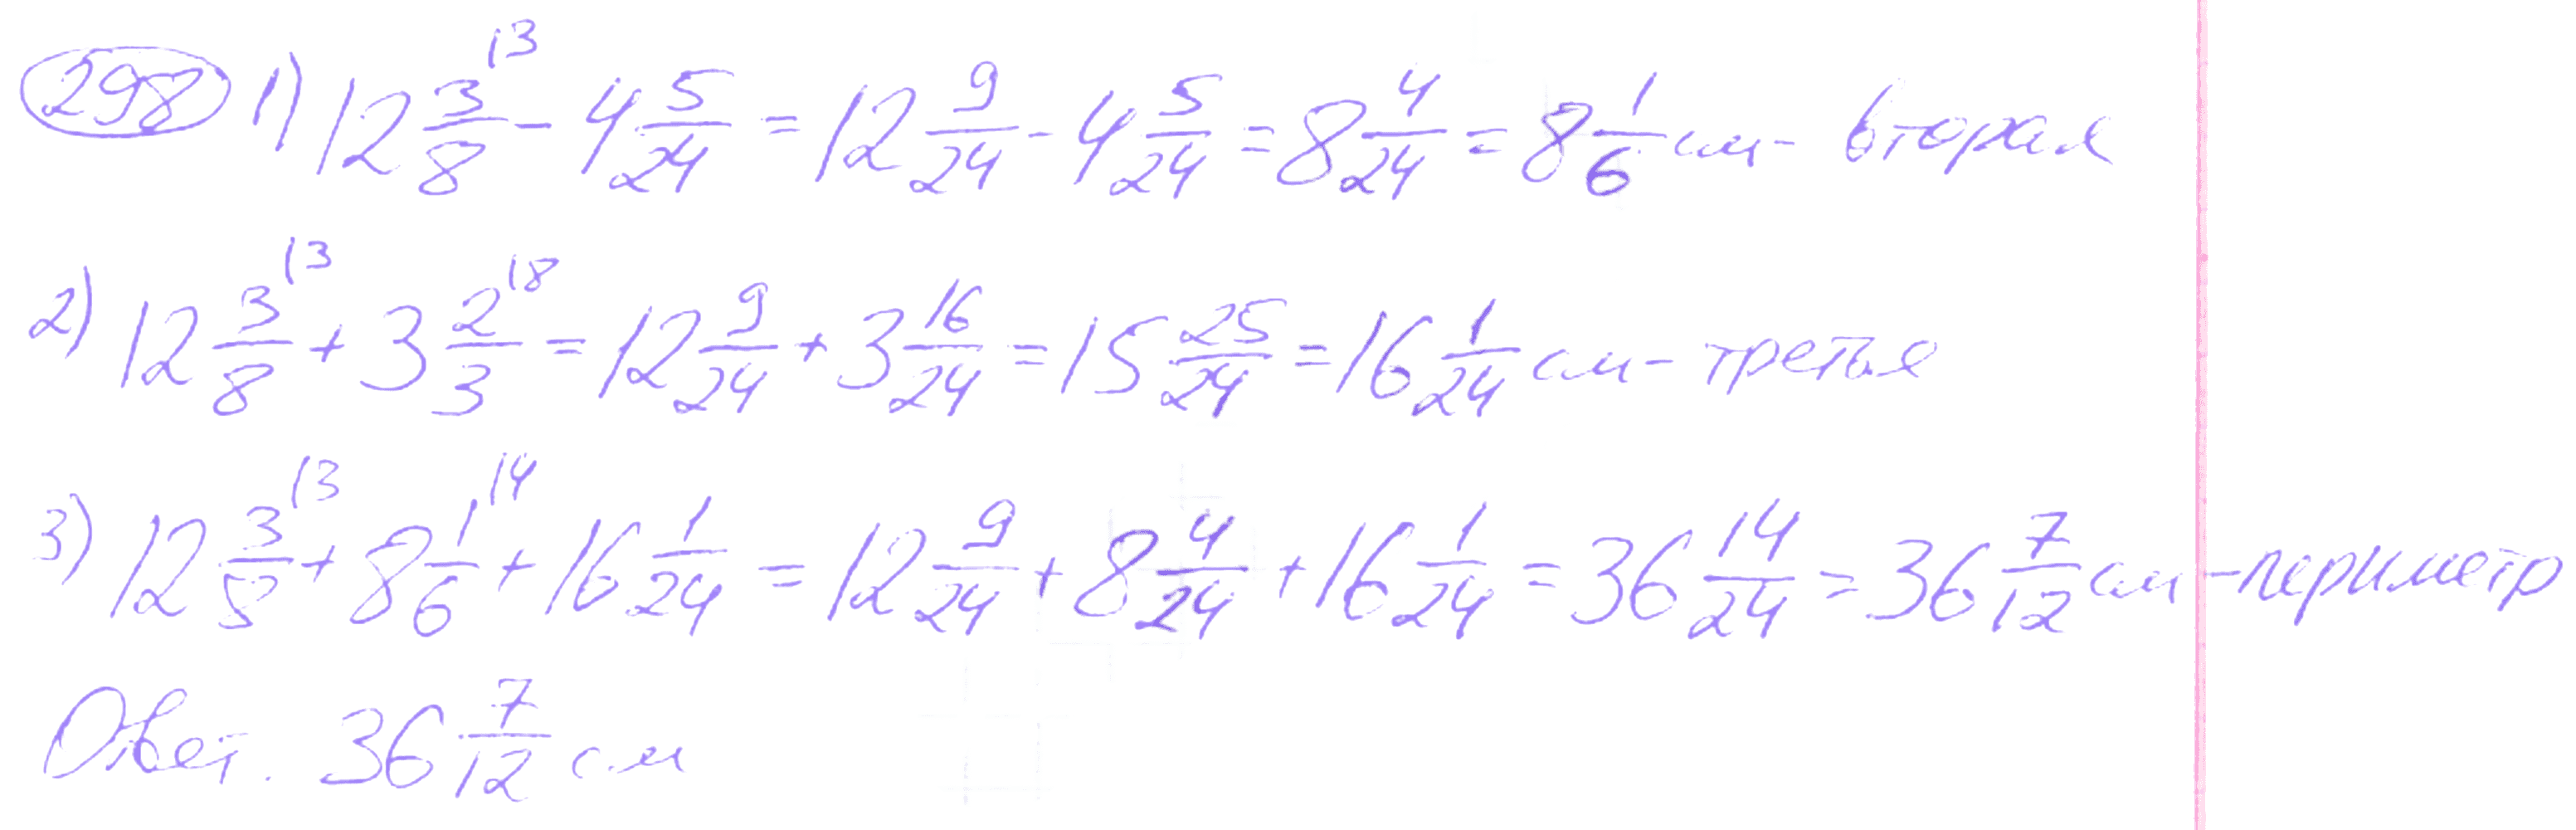 298 1) 12 3/8 ^{\3} - 4 5/24 = 12 9/24 - 4 5/24 = 8 4/24 = 8 1/6 см - вторая
2) 12 3/8 ^{\3} + 3 2/3 ^{\8} = 12 9/24 + 3 16/24 = 15 25/24 = 16 1/24 см - третья
3) 12 3/8 ^{\3} + 8 1/6 ^{\4} + 16 1/24 = 12 9/24 + 8 4/24 + 16 1/24 = 36 14/24 = 36 7/12 см - периметр
Ответ. 36 7/12 см